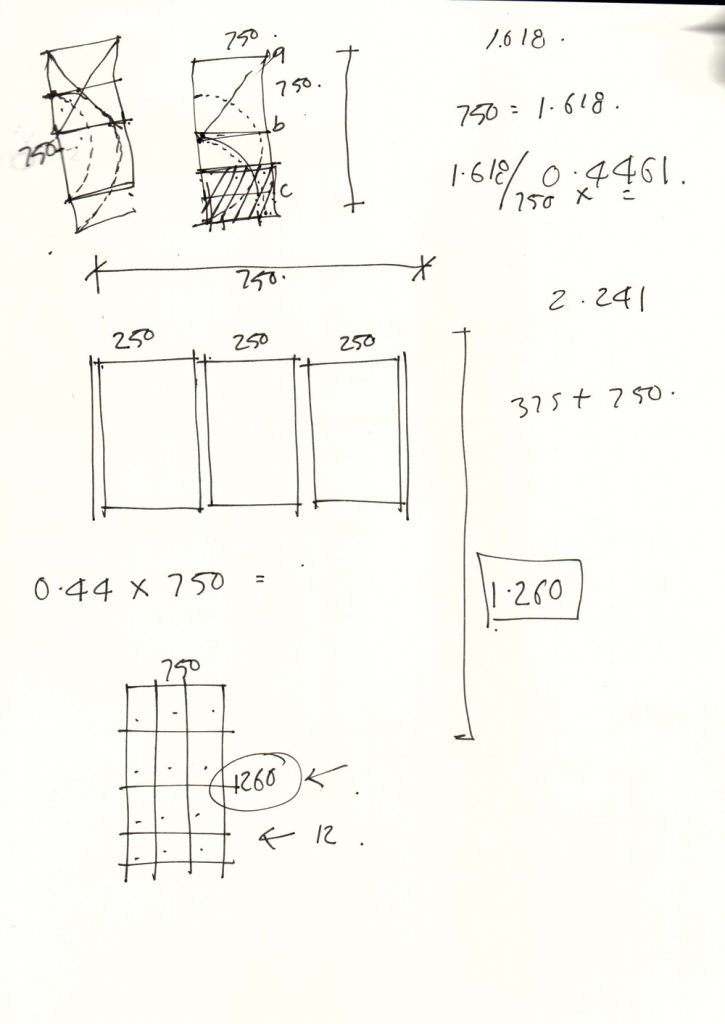 1.618.
750.
a
750.
750 = 1.618.
b
750
1.618/750 0.4461.
x =
c
750.
2.241
250 250 250
375 + 750.
0.44 x 750 =
1.260
750
1260 ←
← 12.